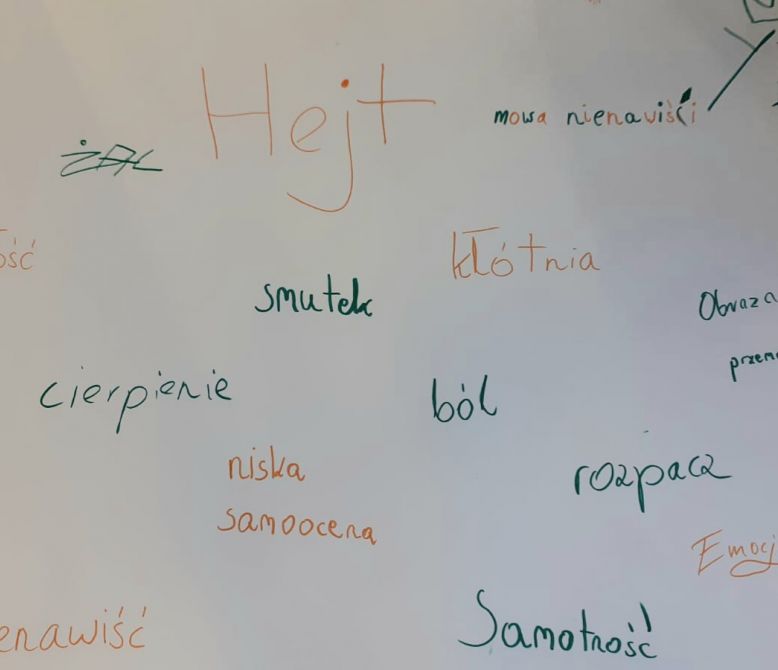 Hejt
mowa nienawiści
żAL
ość
kłótnia
smutek
Obraza
przem
cierpienie
ból
niska
samoocena
rozpacz
Emocj
enawiść
Samotność